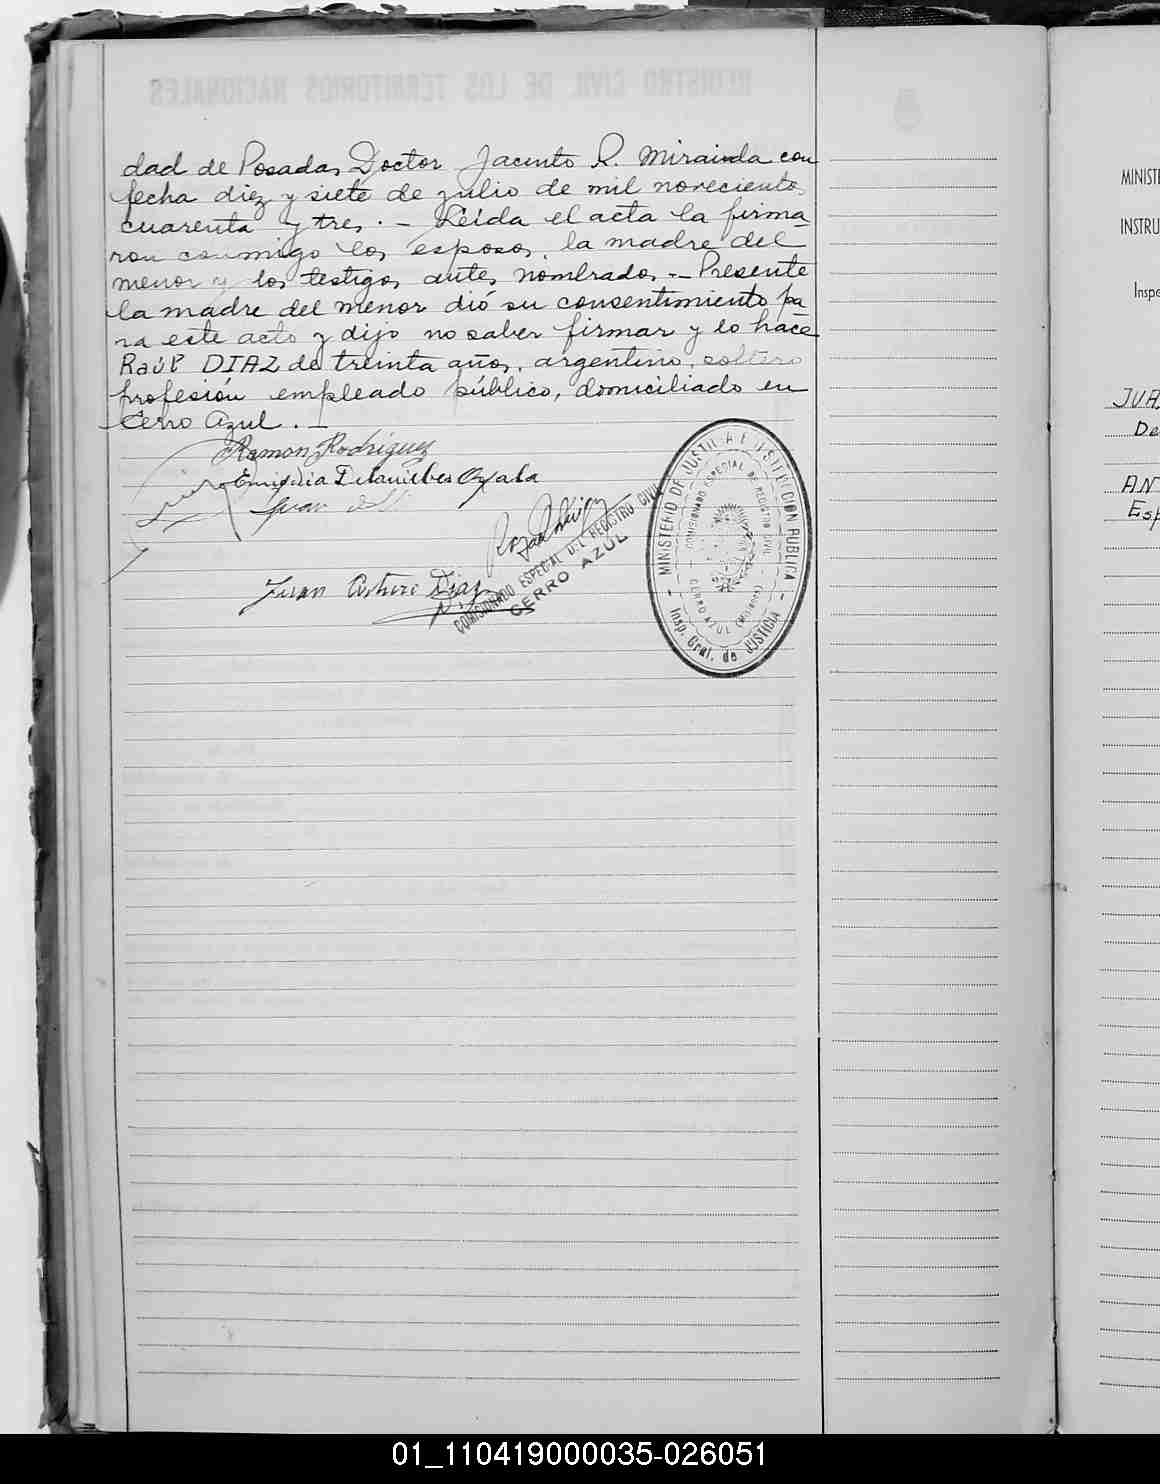 REGISTRO CIVIL DE LOS TERRITORIOS NACIONALES
dad de Posadas Doctor Jacinto R. Mirainda con
fecha diez y siete de julio de mil novecientos
cuarenta y tres. — Leida el acta la firma
ron conmigo los esposos, la madre del
menor y los testigos antes nombrados. — Presente
la madre del menor dió su consentimiento pa
ra este acto y dijo no saber firmar y lo hace
Raúl DIAZ de treinta años, argentino, soltero
profesión empleado público, domiciliado en
Cerro Azul. —
Ramon Rodriguez
Emigdia Ayala
Juan
Juan Díaz
COMISIONADO ESPECIAL DEL REGISTRO CIVIL
CERRO AZUL
MINISTERIO DE JUSTICIA E INSTRUCCION PUBLICA
COMISIONADO ESPECIAL DE REGISTRO CIVIL
CERRO AZUL (Misiones)
Insp. Gral. de JUSTICIA
MINISTE
INSTRU
Inspe
JUA
De
AN
Esp
01_110419000035-026051